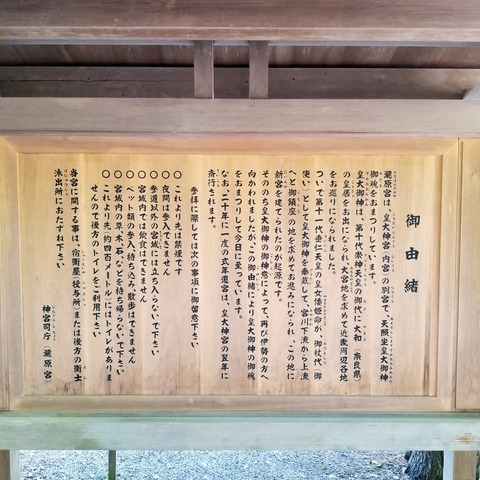 御由緒
瀧原宮は、皇大神宮（内宮）の別宮で、天照坐皇大御神
御魂をおまつりしています。
皇大御神は、第十代崇神天皇の御代に大和（奈良県）
の皇居をお出になられ、大宮地を求めて近畿周辺各地
をお巡りになられました。
ついで第十一代垂仁天皇の皇女倭姫命が、御杖代（御
使い）として皇大御神を奉戴して、宮川下流から上流
へと御鎮座の地を求めてお進みになられ、この地に
新宮を建てられたのが起源です。
そののち皇大御神の御神意によって、再び伊勢の方へ
向かわれましたが、この御由緒により皇大御神の御魂
をおまつりして今日に至っています。
なお、二十年に一度の式年遷宮は、皇大神宮の翌年に
斎行されます。
参拝に際しては次の事項に御留意下さい
〇これより先は禁煙です
〇夜間は参入できません
〇参道以外の宮域には立ち入らないで下さい
〇宮域内では飲食はできません
〇ペット類の参入、持ち込み、散歩はできません
〇宮域内の草、木、石などを持ち帰らないで下さい
〇これより先（約四百メートル）にはトイレがありま
せんので後方のトイレをご利用下さい
当宮に関する事は、宿衛屋（授与所）または後方の衛士
派出所におたずね下さい
神宮司庁（瀧原宮）